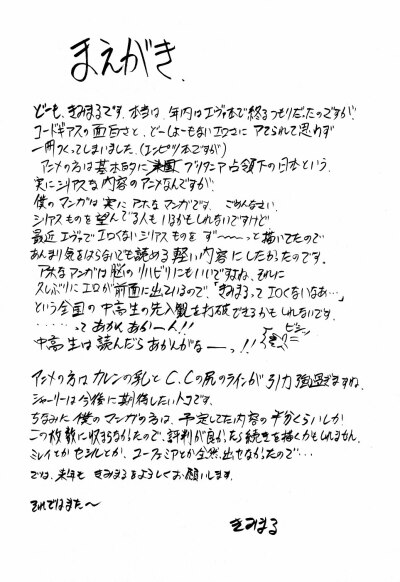 まえがき、
どーも、きみまるです。本当は、年内はエヴァ本で終るつもりだったのですが、
コードギアスの面白さと、どーしよーもないエロさに アテられて思わず
一冊つくってしまいました。(エンピツ本ですが)
アニメの方は基本的に ブリタニア占領下の日本という、
実にシリアスな内容のアニメなんですが、
僕のマンガは実に アホなマンガです。 ごめんなさい。
シリアスものを望んでる人もいるかもしれないですけど
最近 エヴァで エロくないシリアスものを ず〜〜っと描いてたので
あんまり気をはらないでも読める軽い内容にしたかったのです。
アホなマンガは脳のリハビリにもいいですよね、それに
久しぶりにエロが前面に出ているので、「きみまるってエロくないなあ…」
という全国の中高生の先入観を打破できるかもしれないです。
・・・・・って あかん、あかーん!!
中高生は読んだらあかんがなーっ!!
ビシ
アニメの方は カレンの乳と C.C.の尻のラインが 引力強過ぎますね。
シャーリーは今後に期待したいトコです。
ちなみに 僕のマンガの方は、予定してた内容の半分くらいしか
この枚数に収まらなかったので、評判が良かったら続きを描くかもしれません。
ミレイとか セシルとか、ユーフェミアとか全然出せなかったので…
では、来年も きみまるをよろしくお願いします。
それではまた〜
きみまる